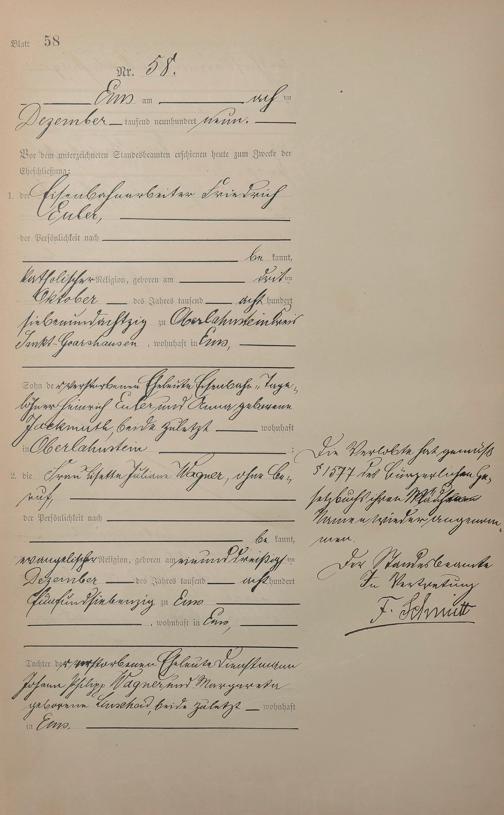 Blatt 58
Nr. 58.
Ems am acht ten
Dezember tausend neunhundert neun.
Vor dem unterzeichneten Standesbeamten erschienen heute zum Zwecke der
Eheschließung:
1. der Eisenbahnarbeiter Friedrich
Euler,
der Persönlichkeit nach
be kannt,
katholischer Religion, geboren am drit ten
Oktober des Jahres tausend acht hundert
siebenundachtzig zu Oberlahnstein Kreis
Sankt-Goarshausen, wohnhaft in Ems,
Sohn der verstorbenen Eheleute Eisenbahn-Tage-
löhner Heinrich Euler und Anna geborene
beide zuletzt wohnhaft
in Oberlahnstein ;
2. die Frau Lisette Juliane Wagner, ohne Be-
ruf,
der Persönlichkeit nach
be kannt,
evangelischer Religion, geboren am einunddreißig ten
Dezember des Jahres tausend acht hundert
fünfundsiebenzig zu Ems
, wohnhaft in Ems,
Tochter der verstorbenen Eheleute Dienstmann
Johann Philipp Wagner und Margareta
geborene beide zuletzt wohnhaft
in Ems.
Die Verlobte hat gemäß
§ 1577 des Bürgerlichen Ge-
setzbuchs ihren Mädchen
Namen wieder angenom-
men.
Der Standesbeamte
In Vertretung
F. Schmitt